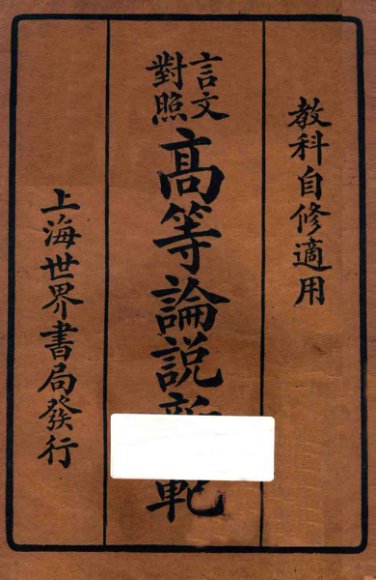 教科自修適用
言文
對照
高等論説新範
上海世界書局發行